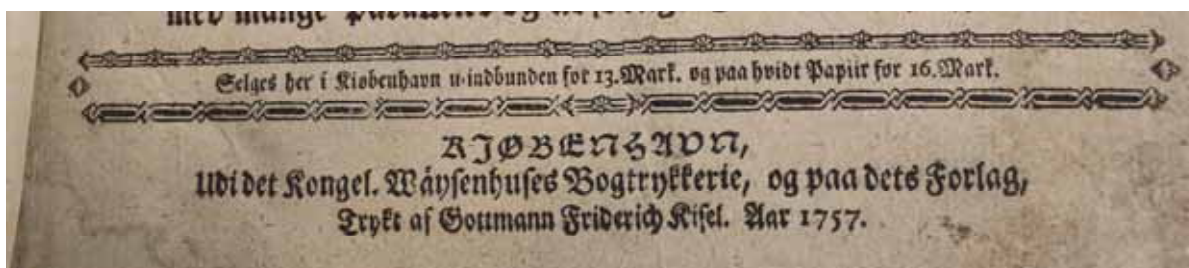 med mange Paralleler og
Selges her i Kiøbenhavn u-indbunden for 13. Mark. og paa hvidt Papiir for 16. Mark.
KJØBENHAVN,
Udi det Kongel. Wäysenhuses Bogtrykkerie, og paa dets Forlag,
Trykt af Gottmann Friderich Kisel. Aar 1757.